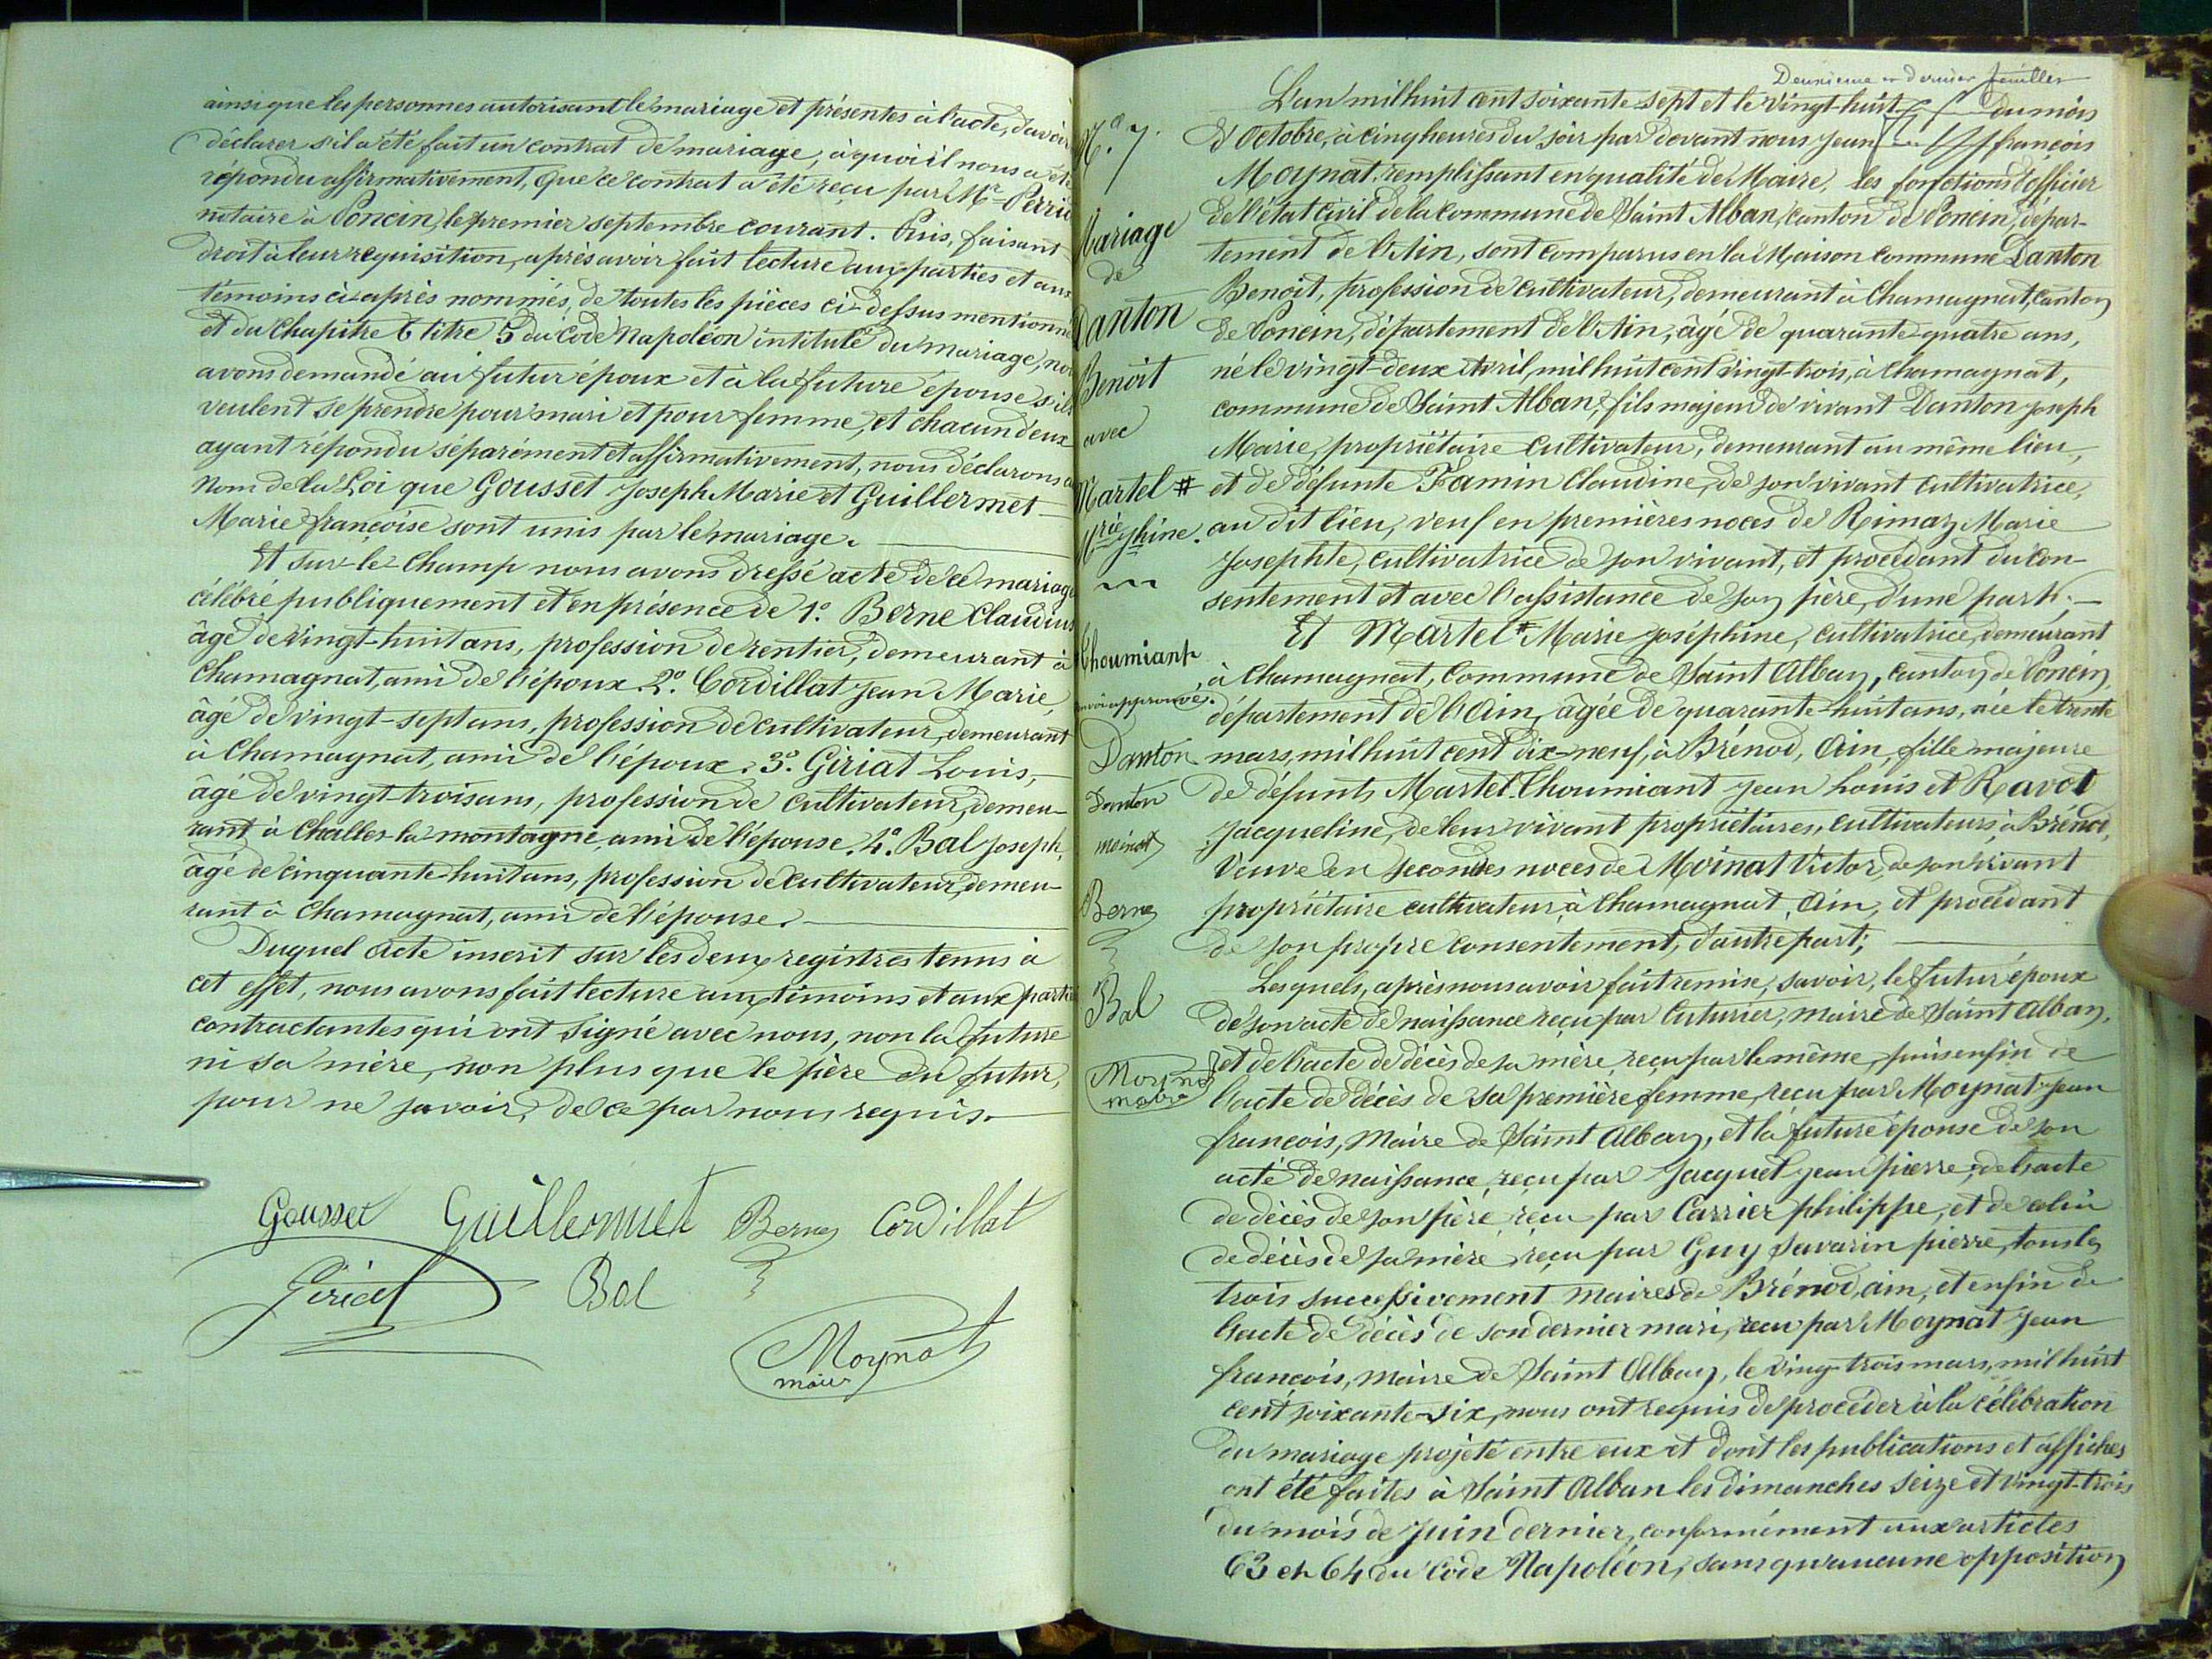 ainsi que les personnes autorisant le mariage et présentes à l'acte, d'avoir
déclarer s'il a été fait un contrat de mariage, à quoi il nous a été
répondu affirmativement, que ce contrat a été reçu par Mr Perrin
notaire à Poncin, le premier septembre courant. Puis, faisant
droit à leur requisition, après avoir fait lecture aux parties et aux
témoins ci-après nommés, de toutes les pièces ci-dessus mentionne
et du Chapitre 6 titre 5 du Code Napoléon intitulé du mariage, nou
avons demandé au futur époux et à la future épouse s'ils
veulent se prendre pour mari et pour femme, et chacun d'eux
ayant répondu séparément et affirmativement, nous déclarons au
nom de la Loi que Gousset Joseph Marie et Guillermet
Marie françoise sont unis par le mariage.
Et sur-le-champ nous avons dressé acte de ce mariage
célébré publiquement et en présence de 1º. Berne Claudius
âgé de vingt-huit ans, profession de rentier, demeurant à
Chamagnat, ami de l'époux. 2º. Cordillat Jean Marie,
âgé de vingt-sept ans, profession de cultivateur, demeurant
à Chamagnat, ami de l'époux. 3º. Giriat Louis,
âgé de vingt-trois ans, profession de cultivateur, demeu-
rant à Challes-la-montagne, ami de l'épouse. 4º. Bal Joseph,
âgé de cinquante-huit ans, profession de cultivateur, demeu-
rant à Chamagnat, ami de l'épouse.
Duquel acte inscrit sur les deux registres tenus à
cet effet, nous avons fait lecture aux témoins et aux parties
contractantes qui ont signé avec nous, non la future
ni sa mère, non plus que le père du futur,
pour ne savoir, de ce par nous requis.
Gousset Guillermet Berne Cordillat
Giriat Bal
Moynat
maire
Deuxième et dernier feuillet
Nº. 7.
Mariage
de
Danton
Benoit
avec
Martel #
Mrie Jphine.
Choumiant
renvoi approuvé.
Danton
Danton
moinat
Berne
Bal
Moynat
maire
L'an mil huit cent soixante-sept et le vingt-huit du mois
d'Octobre, à cinq heures du soir par devant nous Jean françois
Moynat remplissant en qualité de Maire, les fonctions d'officier
de l'état civil de la commune de Saint Alban, canton de Poncin, dépar-
tement de l'Ain, sont comparus en la Maison commune Danton
Benoit, profession de cultivateur, demeurant à Chamagnat, canton
de Poncin, département de l'Ain, âgé de quarante-quatre ans,
né le vingt-deux Avril, mil huit cent vingt-trois, à Chamagnat,
commune de Saint Alban, fils majeur de vivant Danton Joseph
Marie, propriétaire cultivateur, demeurant au même lieu,
et de défunte Famin Claudine, de son vivant cultivatrice,
au dit lieu, veuf en premières noces de Rimaz Marie
Josephte, cultivatrice de son vivant, et procédant du con-
sentement et avec l'assistance de son père, d'une part;
Et Martel # Marie Joséphine, cultivatrice, demeurant
à Chamagnat, commune de Saint Alban, canton de Poncin,
département de l'Ain, âgée de quarante-huit ans, née le trente
mars, mil huit cent dix-neuf, à Brénod, Ain, fille majeure
de défunts Martel-Choumiant Jean Louis et Ravot
Jacqueline, de leur vivant propriétaires, cultivateurs à Brénod,
veuve en secondes noces de Moinat Victor, de son vivant
propriétaire cultivateur à Chamagnat, Ain, et procédant
de son propre consentement, d'autre part;
Lesquels, après nous avoir fait remise, savoir, le futur époux
de son acte de naissance reçu par Cuturier, maire de Saint Alban,
et de l'acte de décès de sa mère, reçu par le même, puis enfin de
l'acte de décès de sa première femme, reçu par Moynat Jean
françois, Maire de Saint Alban, et la future épouse de son
acte de naissance, reçu par Jacquet Jean pierre, de l'acte
de décès de son père reçu par Carrier philippe, et de celui
de décès de sa mère reçu par Guy Savarin pierre, tous les
trois successivement maires de Brénod, ain, et enfin de
l'acte de décès de son dernier mari, reçu par Moynat Jean
françois, maire de Saint Alban, le vingt-trois mars, mil huit
cent soixante-six, nous ont requis de procéder à la célébration
du mariage projeté entre eux et dont les publications et affiches
ont été faites à Saint Alban les dimanches seize et vingt-trois
du mois de Juin dernier, conformément aux articles
63 et 64 du Code Napoléon, sans qu'aucune opposition